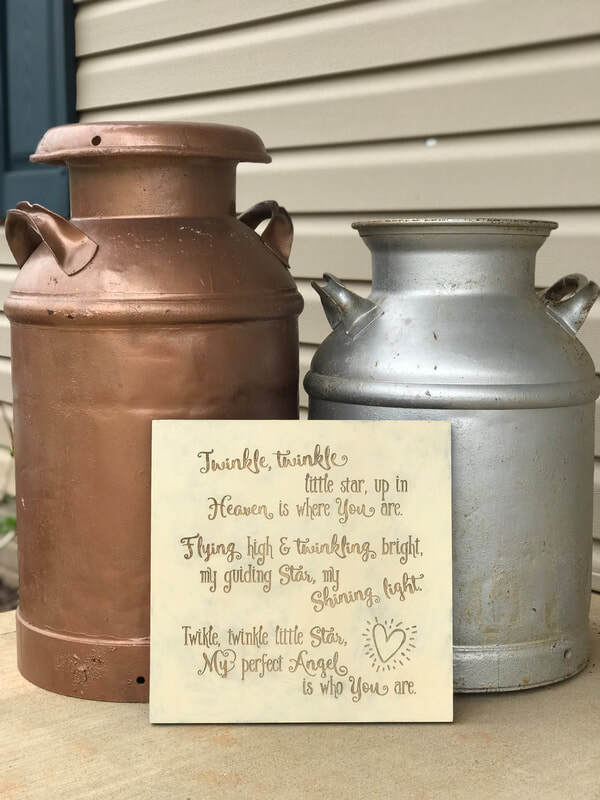 Twinkle, twinkle
little star, up in
Heaven is where You are.
Flying high & twinkling bright,
my guiding Star, my
Shining light.
Twikle, twinkle little Star,
My perfect Angel
is who You are.